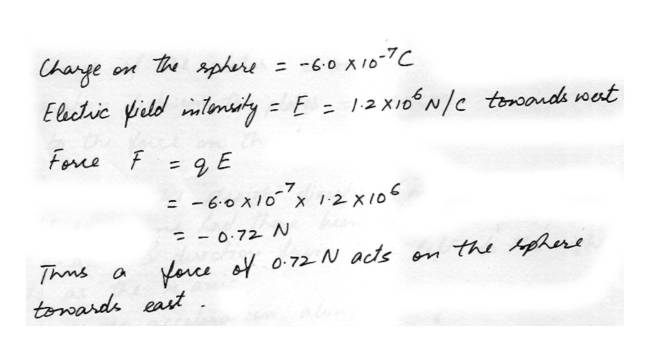 Charge on the sphere = -6.0 x 10⁻⁷C
Electric field intensity = E = 1.2 x 10⁶ N/C towards west
Force F = qE
= -6.0 x 10⁻⁷ x 1.2 x 10⁶
= - 0.72 N
Thus a force of 0.72 N acts on the sphere
towards east.